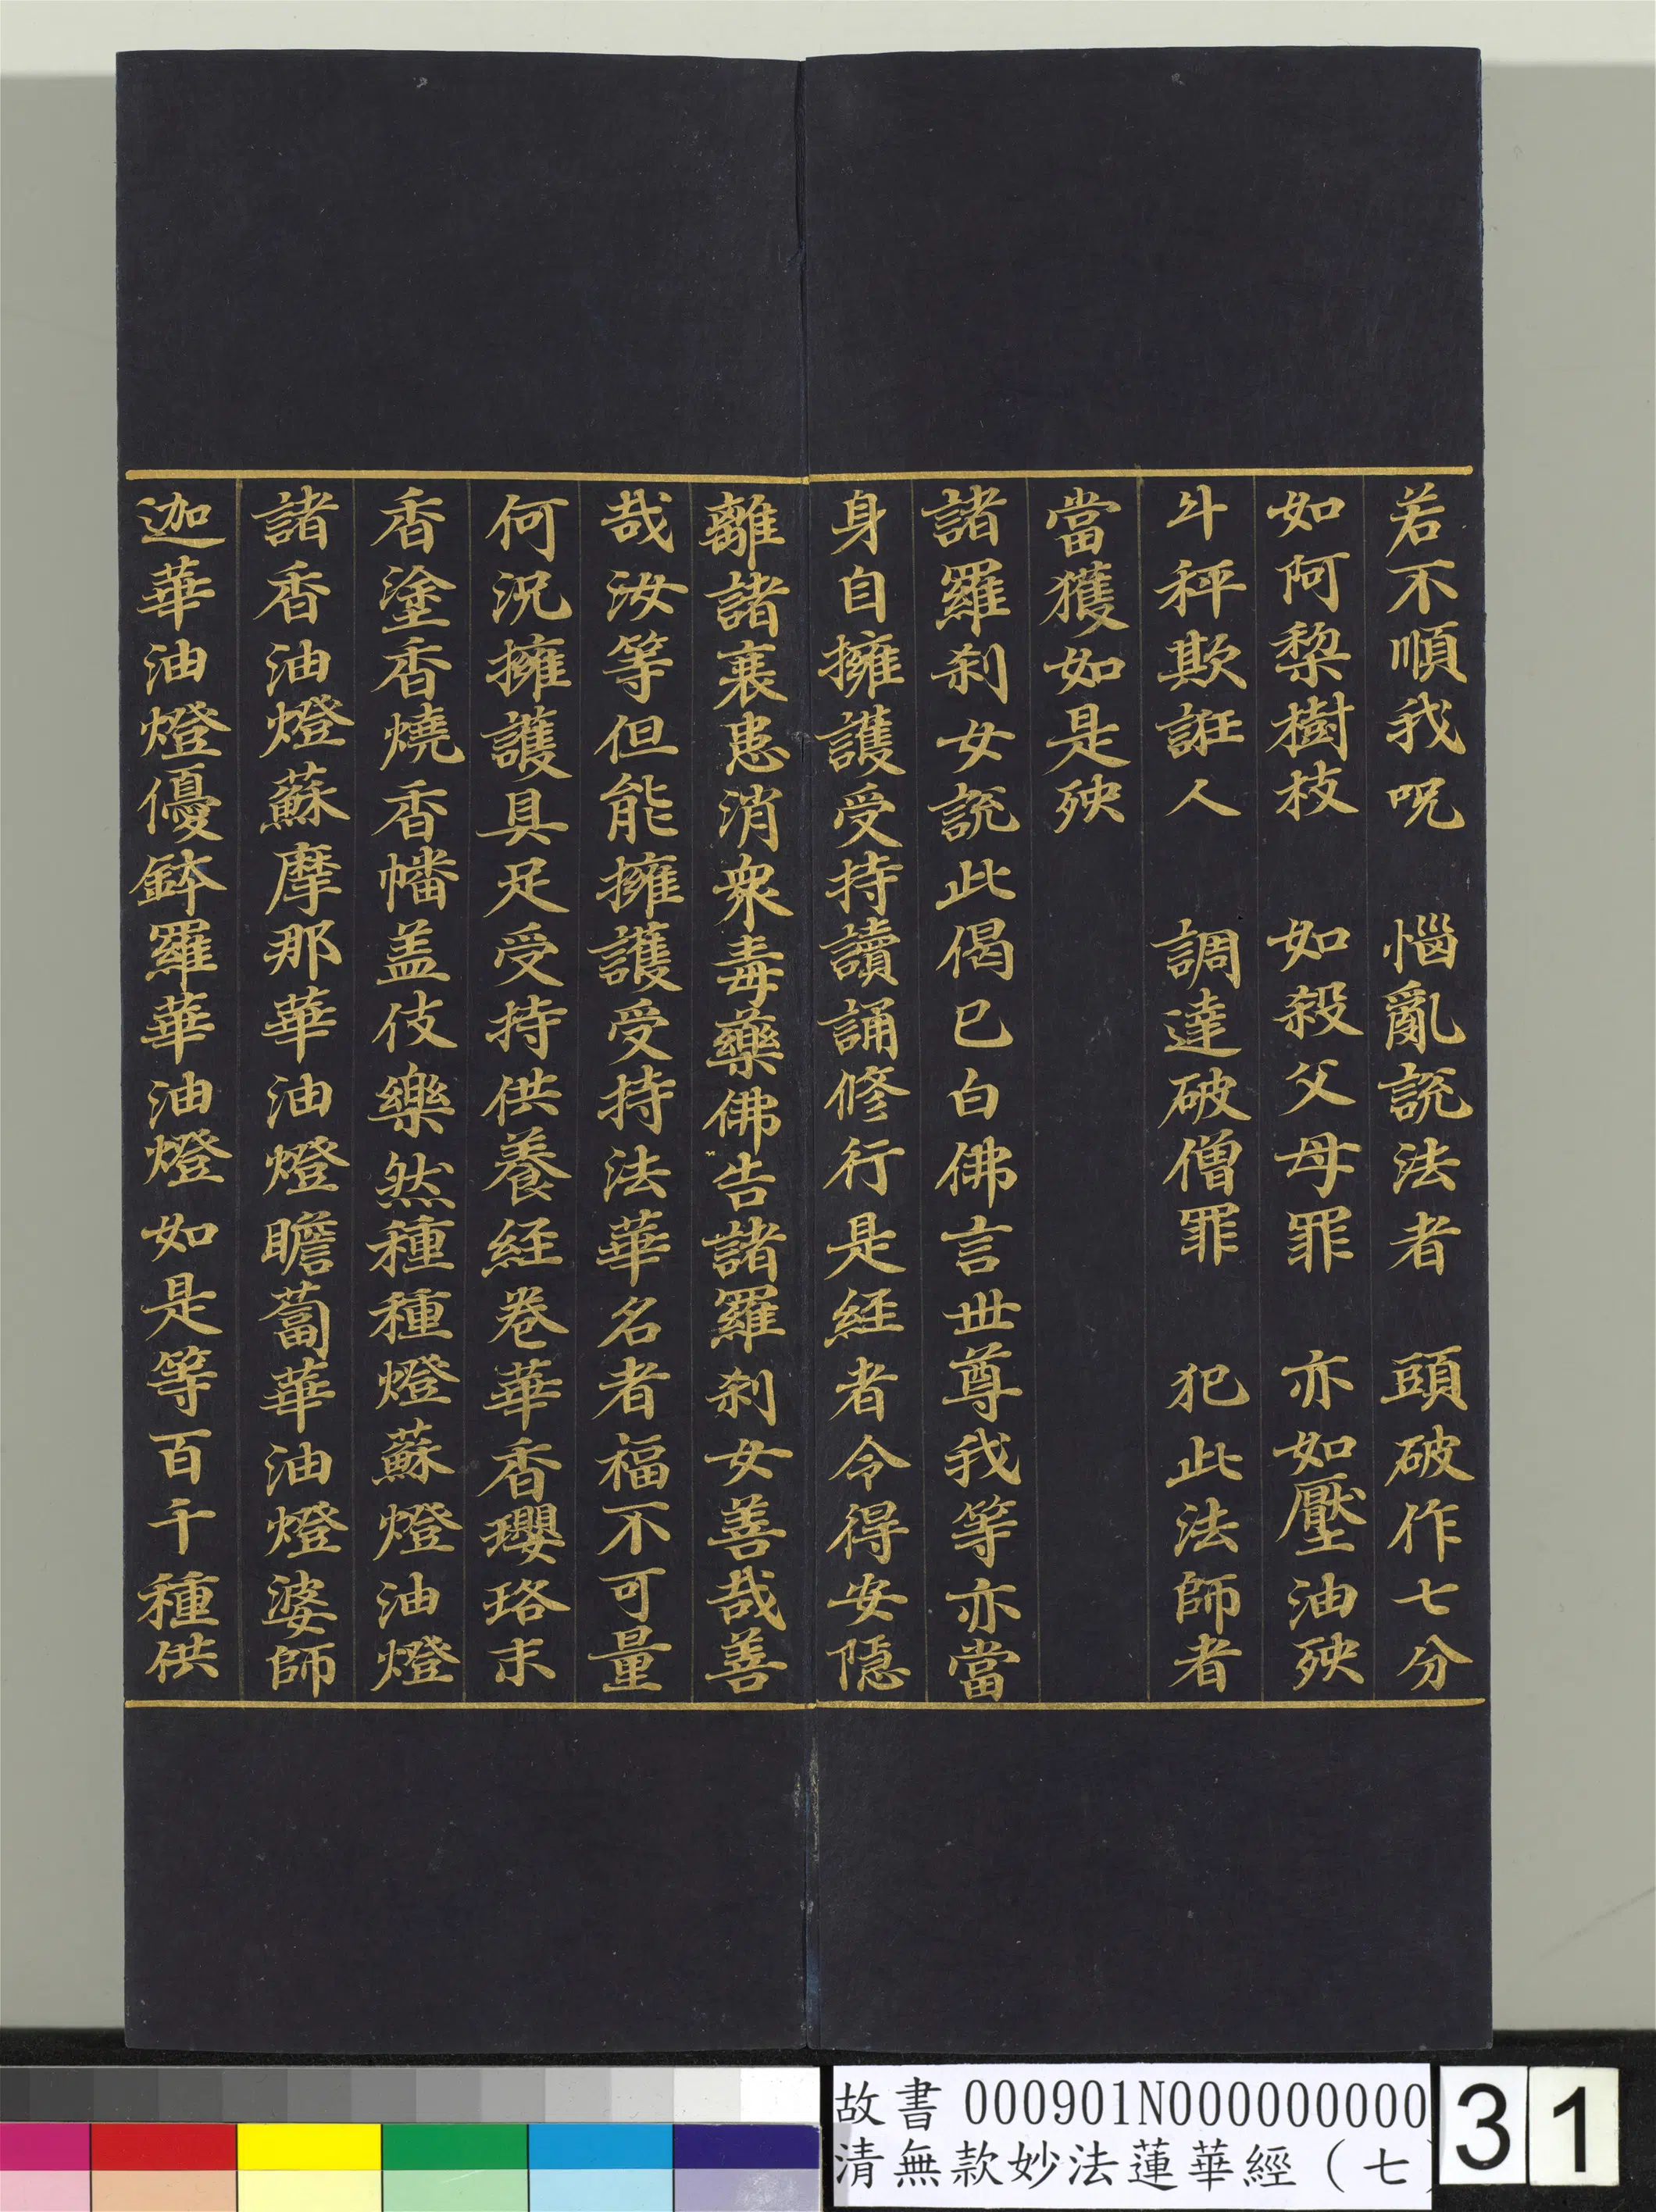 若不順我呪　惱亂説法者　頭破作七分
如阿棃樹枝　如殺父母罪　亦如壓油殃
斗秤欺誑人　調達破僧罪　犯此法師者
當獲如是殃
諸羅刹女説此偈已白佛言世尊我等亦當
身自擁護受持讀誦修行是經者令得安隱
離諸衰患消衆毒藥佛告諸羅刹女善哉善
哉汝等但能擁護受持法華名者福不可量
何況擁護具足受持供養經卷華香瓔珞末
香塗香燒香幡盖伎樂然種種燈蘇燈油燈
諸香油燈蘇摩那華油燈瞻蔔華油燈婆師
迦華油燈優鉢羅華油燈如是等百千種供
故書 000901N000000000
清無款妙法蓮華經（七）
31